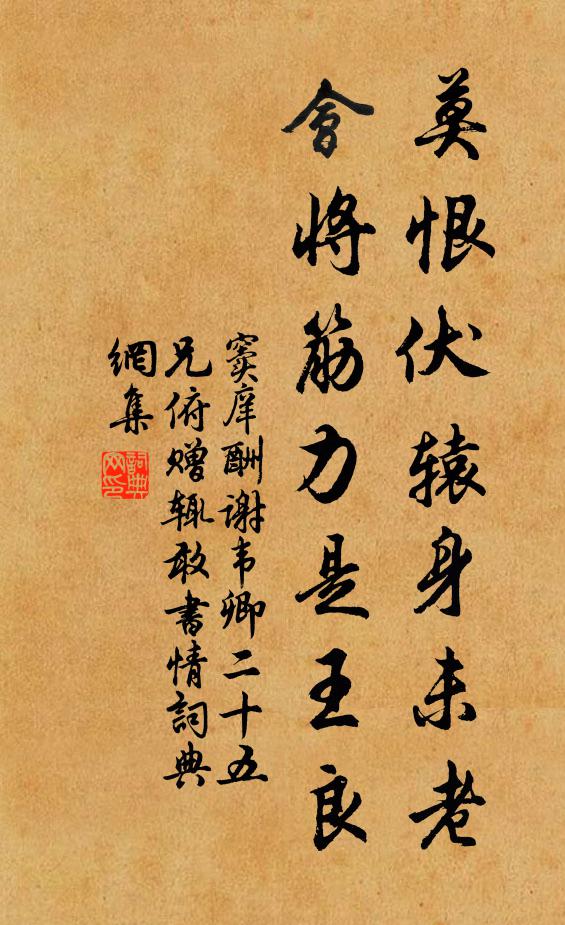 莫恨伏辕身未老
會將筋力是王良
窦庠酬谢韦卿二十五
兄俯赠辄敢書情詞典
網集
詞典
网印